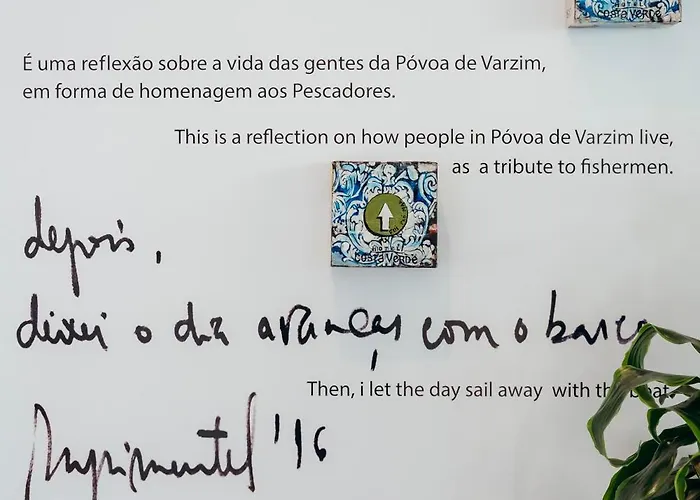 COSTA VERDE
É uma reflexão sobre a vida das gentes da Póvoa de Varzim,
em forma de homenagem aos Pescadores.
This is a reflection on how people in Póvoa de Varzim live,
as a tribute to fishermen.
hotel
COSTA VERDE
depois,
deixei o dia avançar com o barco
Then, i let the day sail away with the boat.
'16